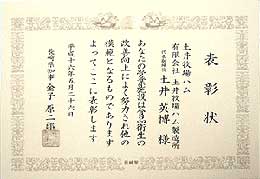 表彰状
土井牧場ハム
有限会社 土井牧場ハム製造所
代表取締役 土井英博 様
あなたの営業施設は食品衛生の
改善向上によく努力され他の
模範となるものであります
よってここに表彰します
平成十六年五月二十六日
長崎県知事 金子原二郎